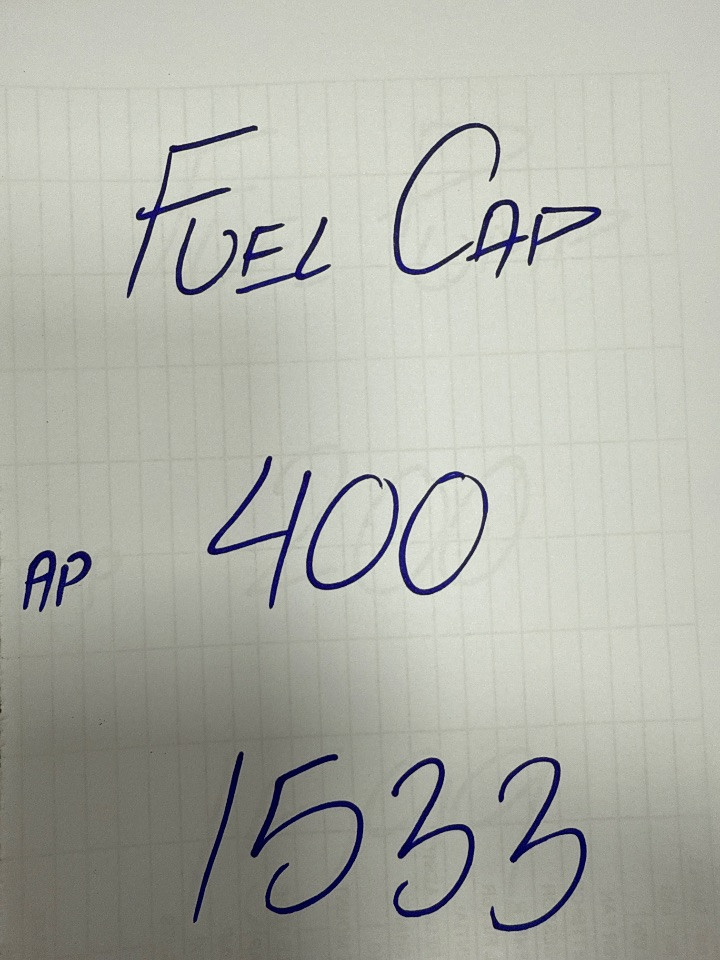 Fuel Cap
AP 400
1533